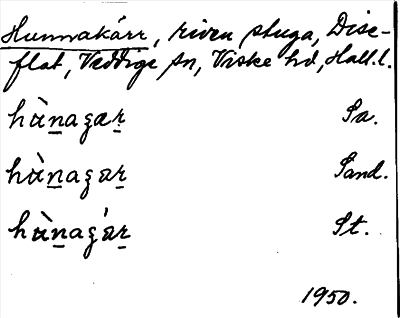 Hunnakärr, riven stuga, Dise-
flat, Veddige sn, Viske hd, Hall.l.
hùn̲aʒar̲ Sa.
hùn̲aʒar̲ Sand.
hùn̲aʒár̲ St.
1950.